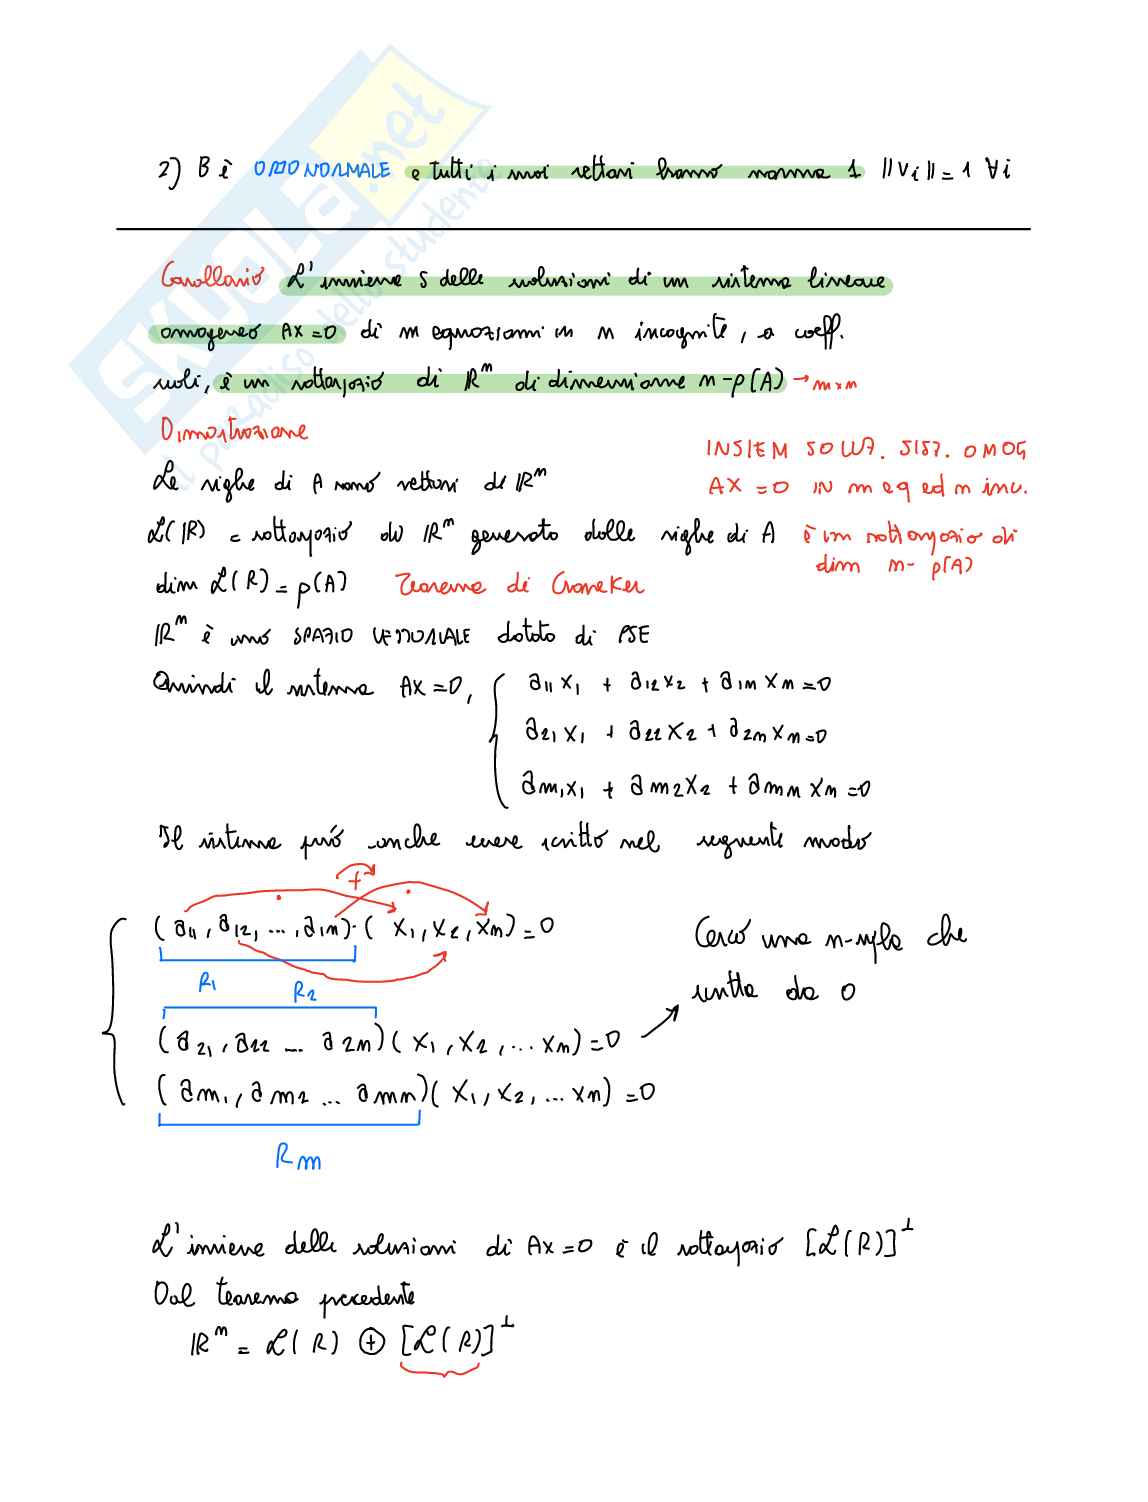 2) B è ORTONORMALE e tutti i suoi vettori hanno norma 1 ||vi|| = 1 ∀i
Corollario L'insieme S delle soluzioni di un sistema lineare
omogeneo AX=0 di m equazioni in n incognite, a coeff.
reali, è un sottospazio di ℝⁿ di dimensione n-p(A) → m×n
Dimostrazione
INSIEM SOLUZ. SIST. OMOG
AX=0 IN m eq ed n inc.
è un sottospazio di
dim n- p(A)
Le righe di A sono vettori di ℝⁿ
ℒ(R) = sottospazio di ℝⁿ generato dalle righe di A
dim ℒ(R) = p(A) Teorema di Croneker
ℝⁿ è uno SPAZIO VETTORIALE dotato di PSE
Quindi il sistema AX=0, { a11 x1 + a12 x2 + a1n xn = 0
a21 x1 + a22 x2 + a2n xn = 0
am1 x1 + am2 x2 + amn xn = 0
Il sistema può anche essere scritto nel seguente modo
+
(a11, a12, ..., a1n) · (x1, x2, xn) = 0
R1
R2
(a21, a22 ... a2n)(x1, x2, ... xn) = 0
(am1, am2 ... amn)(x1, x2, ... xn) = 0
Rm
Cerco una n-upla che
scritta da 0
L'insieme delle soluzioni di AX=0 è il sottospazio [ℒ(R)]⊥
Dal teorema precedente
ℝⁿ = ℒ(R) ⊕ [ℒ(R)]⊥
SKUOLA.net
il paradiso dello studente